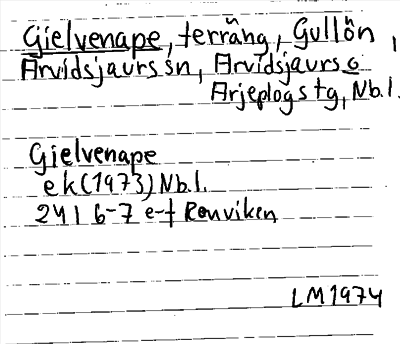 Gielvenape, terräng, Gullön,
Arvidsjaurs sn, Arvidsjaurs o
Arjeplogs tg, Nb.l.
Gielvenape
ek (1973) Nb.l.
241 6-7 e-f Renviken
LM 1974